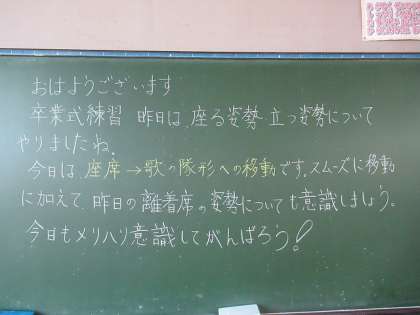 おはようございます
卒業式練習 昨日は、座る姿勢 立つ姿勢について
やりましたね。
今日は、座席→歌の隊形への移動です。スムーズに移動
に加えて、昨日の離着席の姿勢についても意識しましょう。
今日もメリハリ意識してがんばろう!